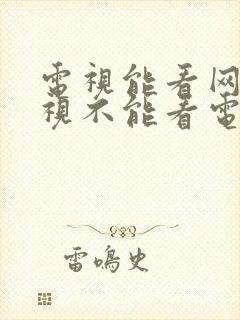 電視能看网
視不能看電
雷鳴史